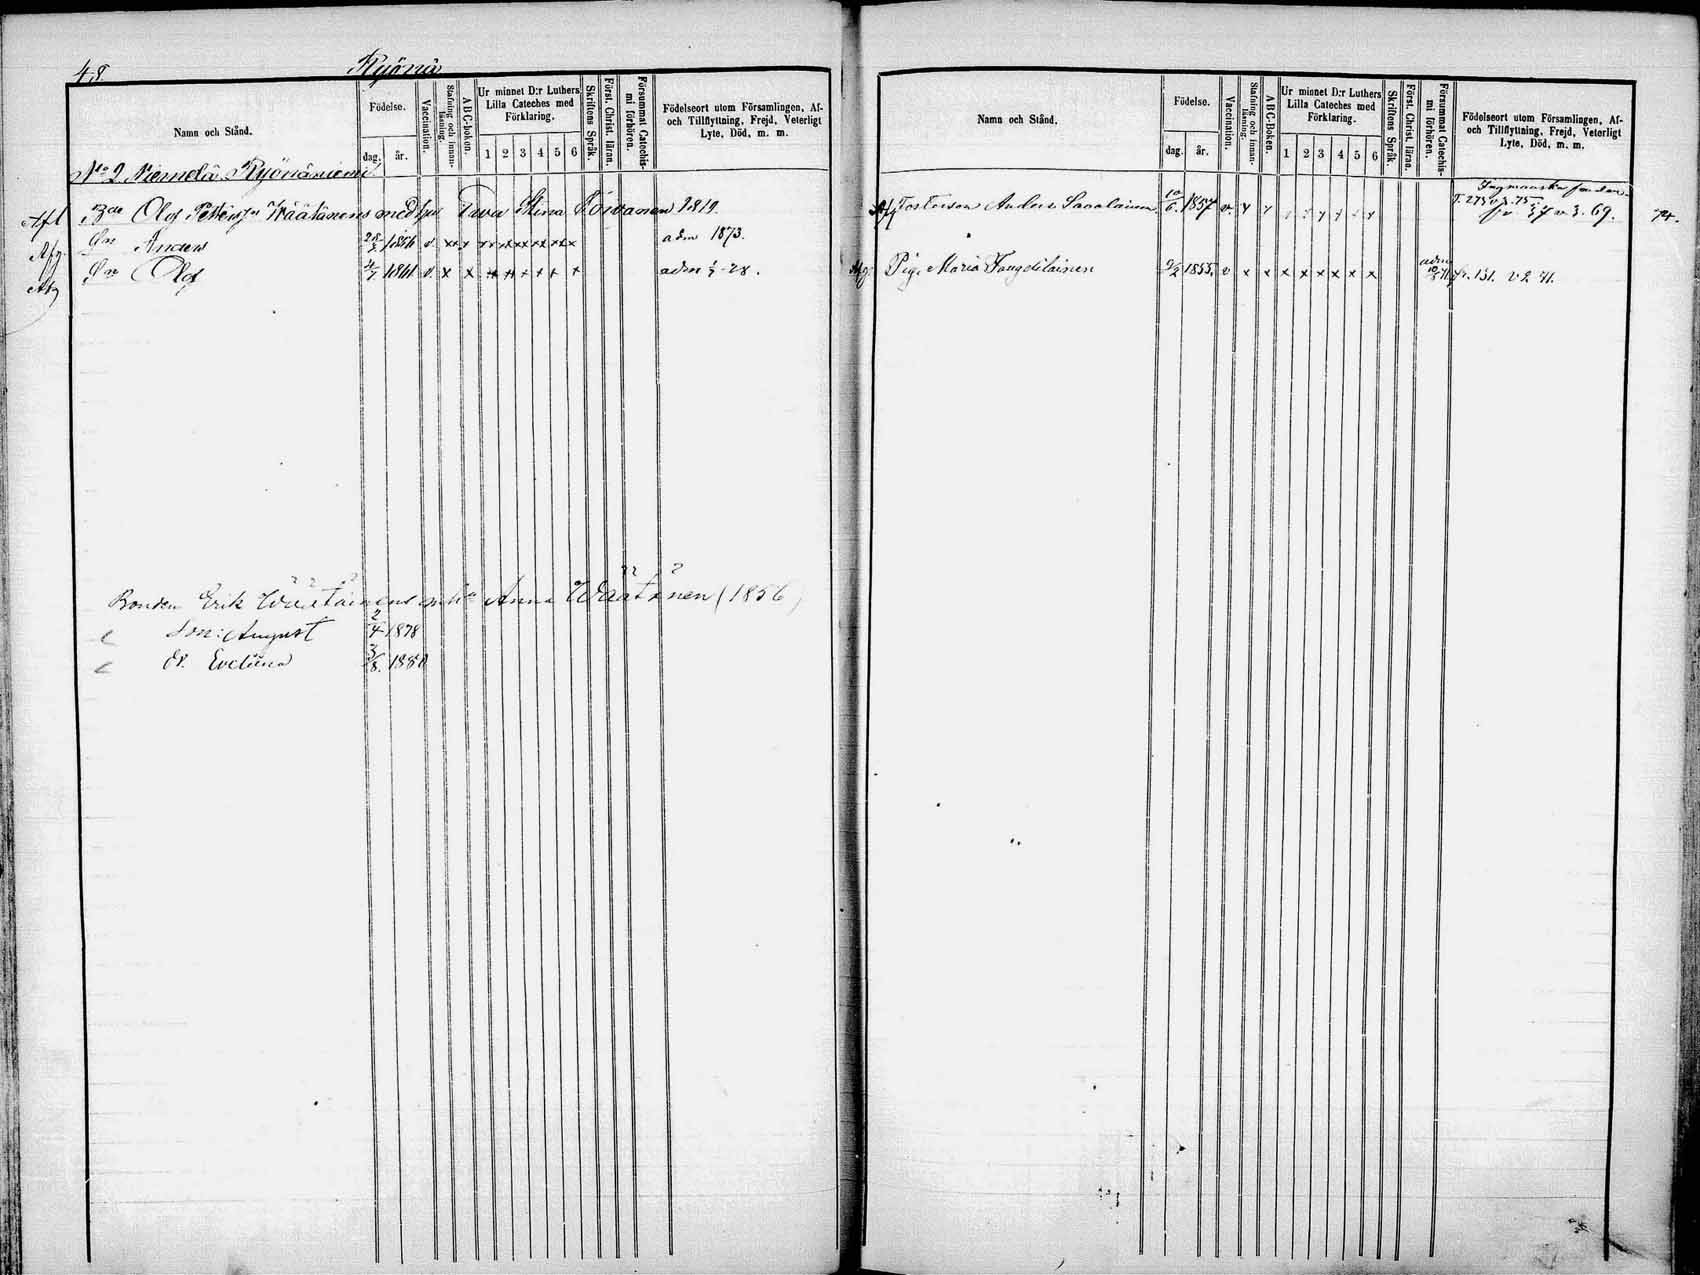 48. Ryönä
Namn och Stånd.
Födelse.
dag. år.
Vaccination.
Stafning och innan-läsning.
ABC-boken.
Ur minnet D:r Luthers Lilla Cateches med Förklaring.
1 2 3 4 5 6
Skriftens Språk.
Först. Christ. läran.
Försummat Catechis-mi förhören.
Födelseort utom Församlingen, Af-
och Tillflyttning, Frejd, Veterligt
Lyte, Död, m. m.
No 2 Niemelä Ryönäniemi
Bde Olof Pettersson Wäätänens med hu Eva Stina Toivanen 1819.
Afg. Sn Anders 1856 v x x x x x x x x adm 1873.
Afg Sn Olof 1861 v. x x x x x x x x adm
Bonden Erik Wäätäinens Anna Wäätänen (1856)
Son: August 2/4 1878
Dr. Evelina 3/8. 1880
Namn och Stånd.
Födelse.
dag. år.
Vaccination.
Stafning och innan-läsning.
ABC-boken.
Ur minnet D:r Luthers Lilla Cateches med Förklaring.
1 2 3 4 5 6
Skriftens Språk.
Först. Christ. läran.
Försummat Catechis-mi förhören.
Födelseort utom Församlingen, Af-
och Tillflyttning, Frejd, Veterligt
Lyte, Död, m. m.
Afg Fosterson Anders Savolainen 10/6 1857 v. x x x x x x x x v. 3. 69. 74.
Afg. Pig. Maria 1855. v x x x x x x x x adm fr. 131. v 2 71.